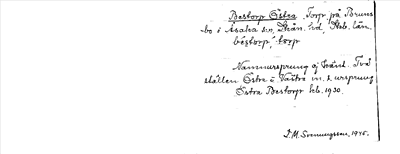 Bestorp Östra Torp på Bruns-
bo i Åsaka sn, Skån. hd, Skb. län.
béstorp, torp
Namnursprung ej känt. Två
ställen Östra o Västra m. s. ursprung
Östra Bestorp beb. 1930.
J. M. Svenungsson, 1945.